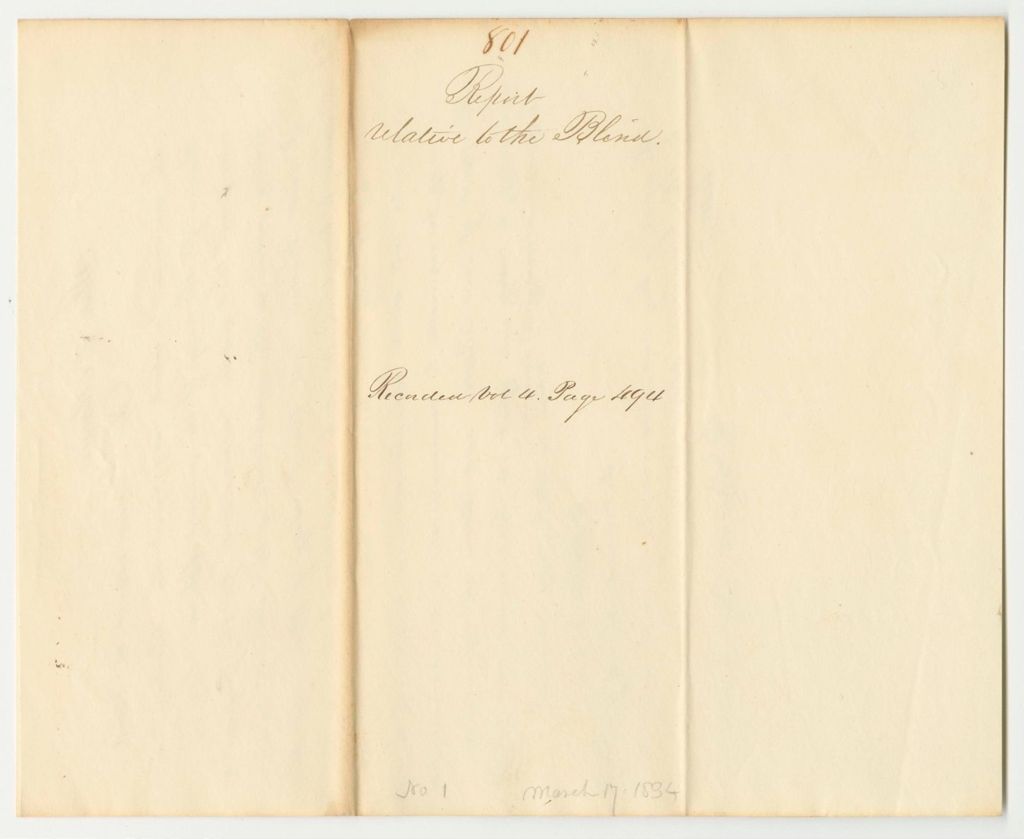 801
Report
relative to the Blind.
Recorded Vol 4. Page 494
No 1 March 17. 1834